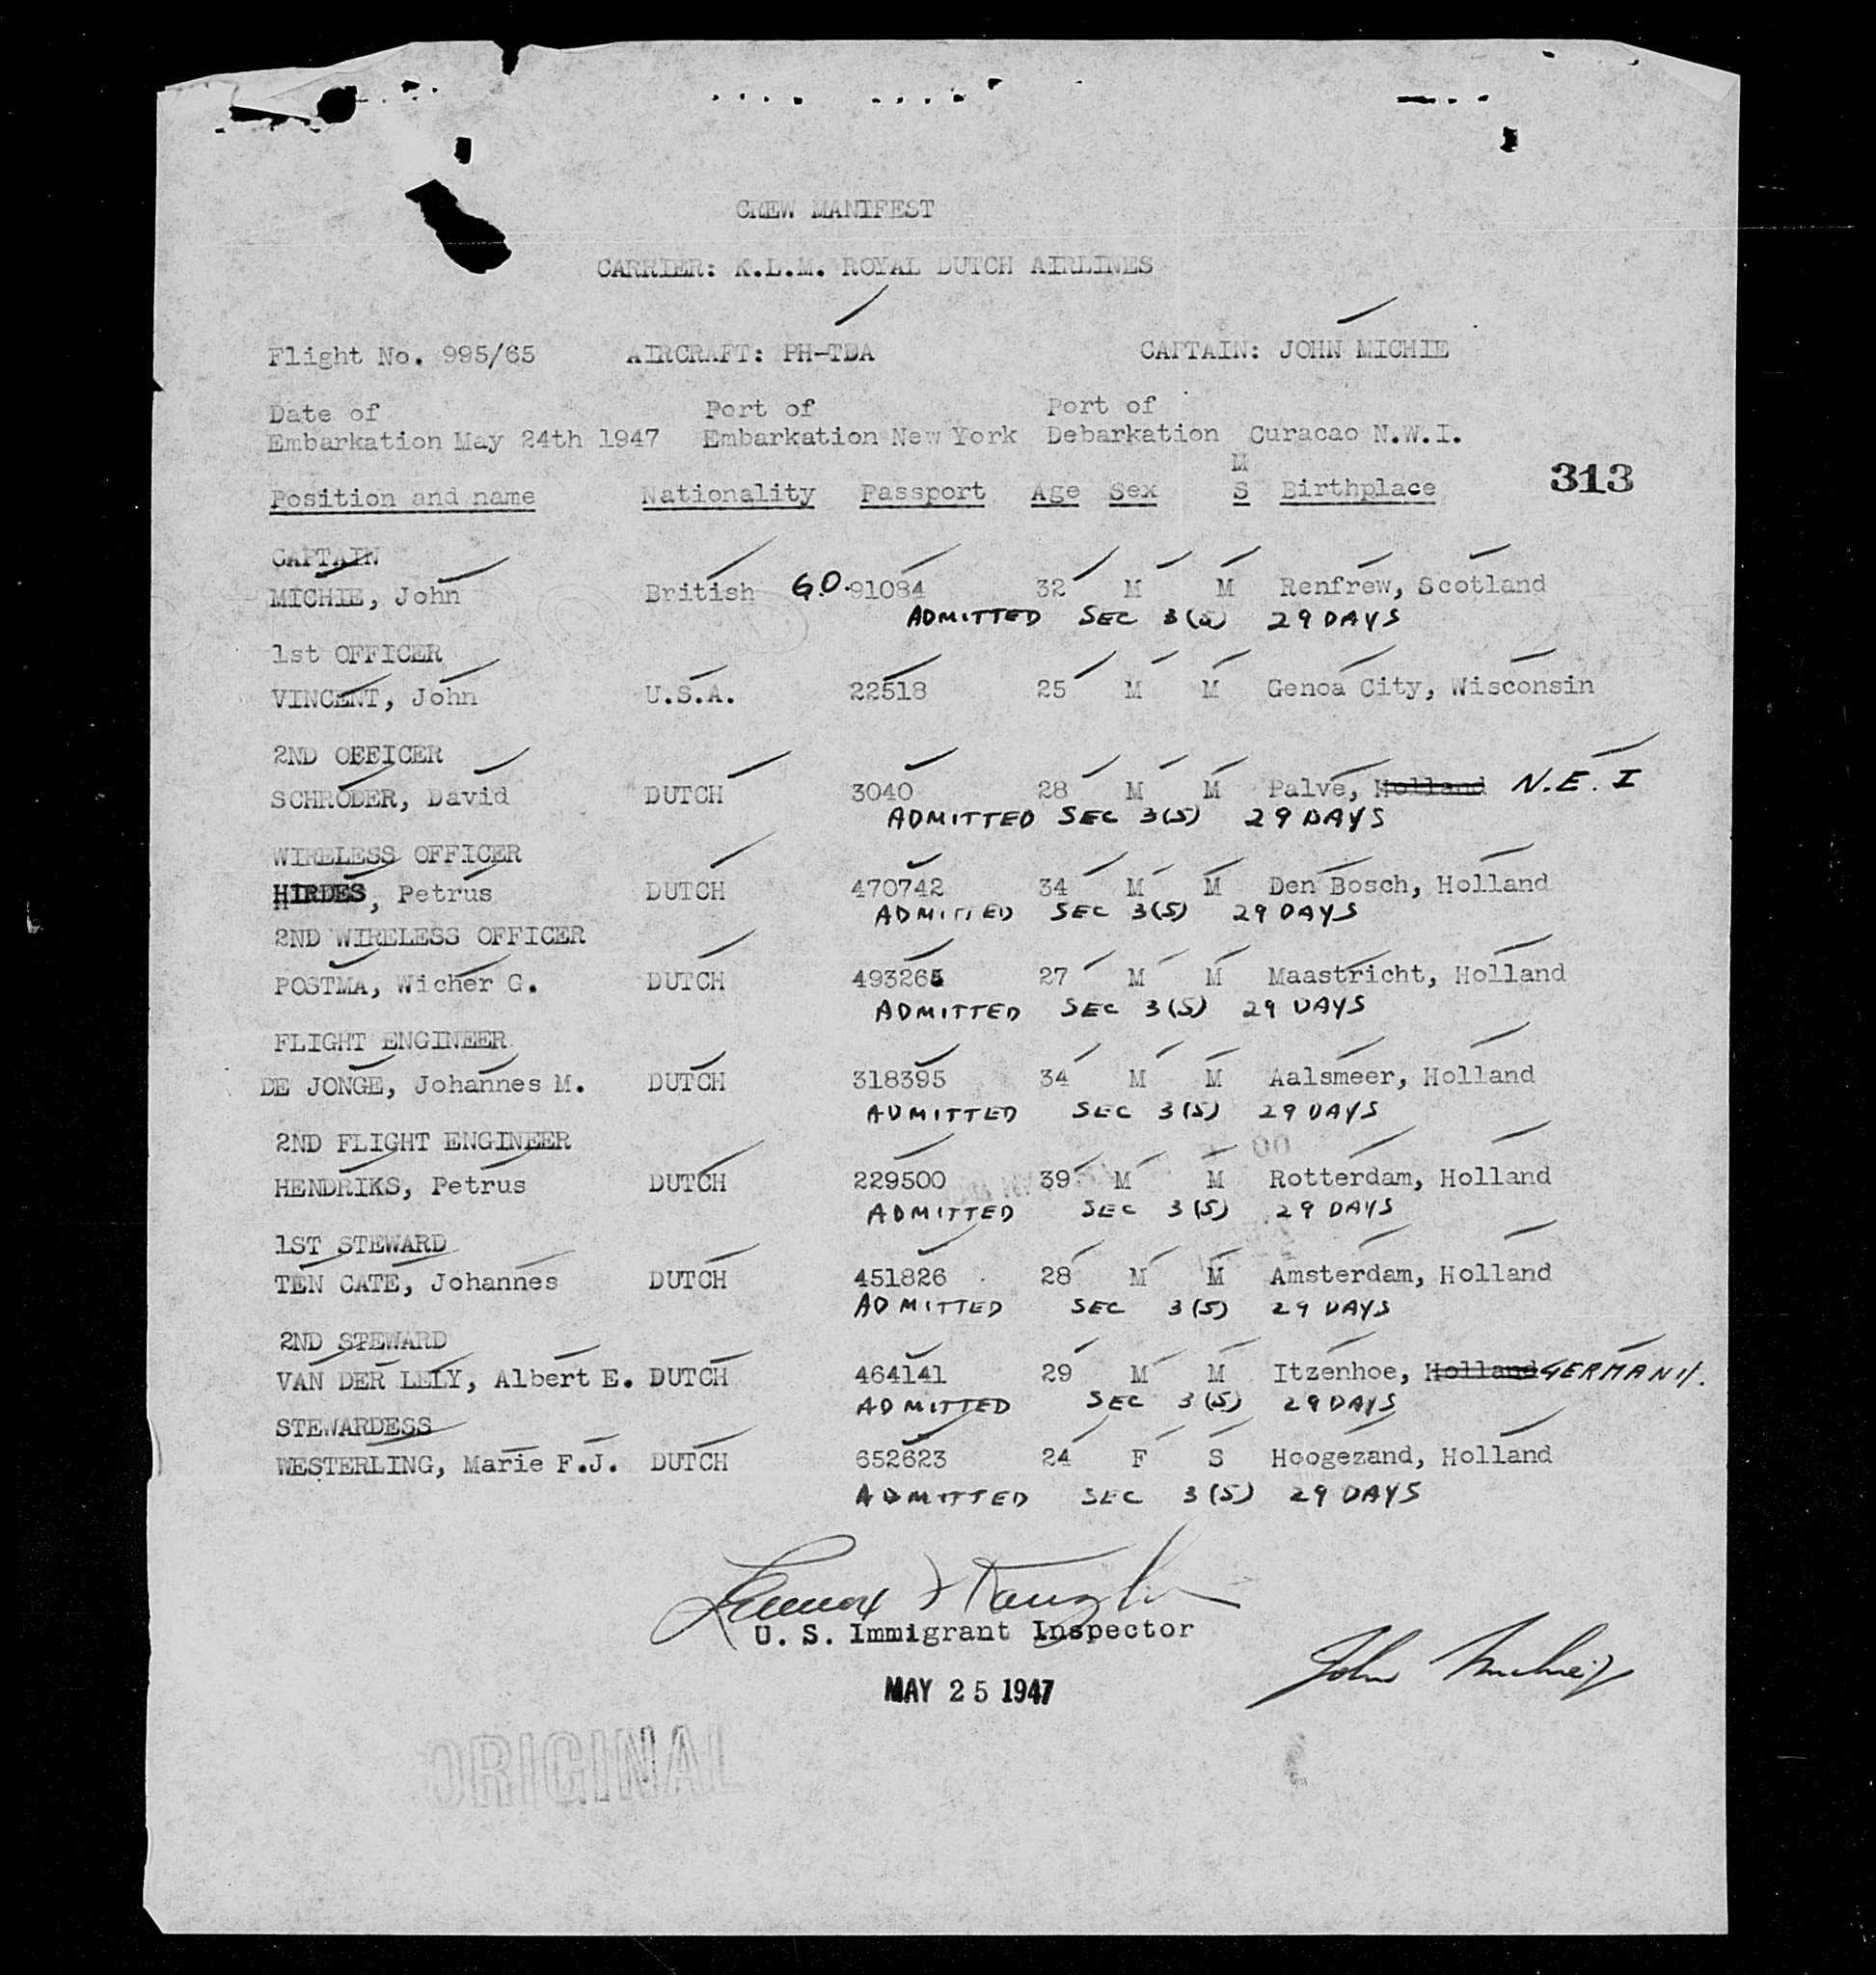 CREW MANIFEST
CARRIER: K.L.M. ROYAL DUTCH AIRLINES
Flight No. 995/65 AIRCRAFT: PH-TDA CAPTAIN: JOHN MICHIE
Date of Port of Port of
Embarkation May 24th 1947 Embarkation New York Debarkation Curacao N.W.I.
M
Position and name Nationality Passport Age Sex S Birthplace 313
CAPTAIN
MICHIE, John British G.O. 91084 32 M M Renfrew, Scotland
ADMITTED SEC 3(5) 29 DAYS
1st OFFICER
VINCENT, John U.S.A. 22518 25 M M Genoa City, Wisconsin
2ND OFFICER
SCHRODER, David DUTCH 3040 28 M M Palve, Holland N.E.I
ADMITTED SEC 3(5) 29 DAYS
WIRELESS OFFICER
HIRDES, Petrus DUTCH 470742 34 M M Den Bosch, Holland
ADMITTED SEC 3(5) 29 DAYS
2ND WIRELESS OFFICER
POSTMA, Wicher G. DUTCH 493265 27 M M Maastricht, Holland
ADMITTED SEC 3(5) 29 DAYS
FLIGHT ENGINEER
DE JONGE, Johannes M. DUTCH 318395 34 M M Aalsmeer, Holland
ADMITTED SEC 3(5) 29 DAYS
2ND FLIGHT ENGINEER
HENDRIKS, Petrus DUTCH 229500 39 M M Rotterdam, Holland
ADMITTED SEC 3(5) 29 DAYS
1ST STEWARD
TEN CATE, Johannes DUTCH 451826 28 M M Amsterdam, Holland
ADMITTED SEC 3(5) 29 DAYS
2ND STEWARD
VAN DER LELY, Albert E. DUTCH 464141 29 M M Itzenhoe, Holland GERMANY.
ADMITTED SEC 3(5) 29 DAYS
STEWARDESS
WESTERLING, Marie F.J. DUTCH 652623 24 F S Hoogezand, Holland
ADMITTED SEC 3(5) 29 DAYS
U. S. Immigrant Inspector
John Michie
MAY 25 1947
ORIGINAL